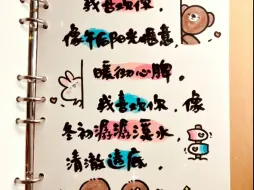 我喜欢你,
像午后阳光惬意,
暖彻心脾,
我喜欢你,像
冬初潺潺溪水,
清澈透底,